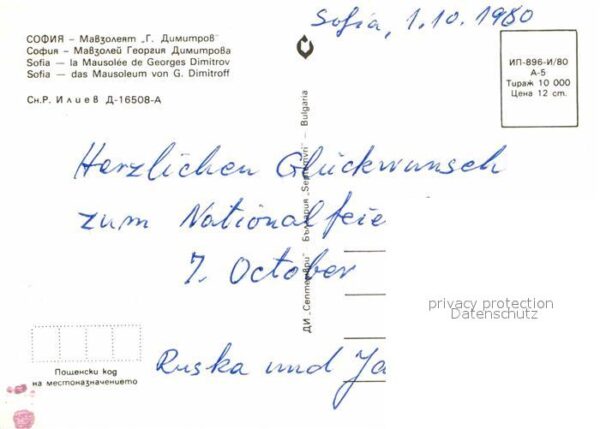 Sofia, 1.10.1980
СОФИЯ – Мавзолеят „Г. Димитров"
София – Мавзолей Георгия Димитрова
Sofia — la Mausolée de Georges Dimitrov
Sofia — das Mausoleum von G. Dimitroff
Сн.Р. Илиев Д-16508-А
ИП-896-И/80
А-5
Тираж 10 000
Цена 12 cт.
ДИ „Септември" България „Septemvri" — Bulgaria
Herzlichen Glückwunsch
zum Nationalfeie
7. October
privacy protection
Datenschutz
Ruska und Ja
Пощенски код
на местоназначението